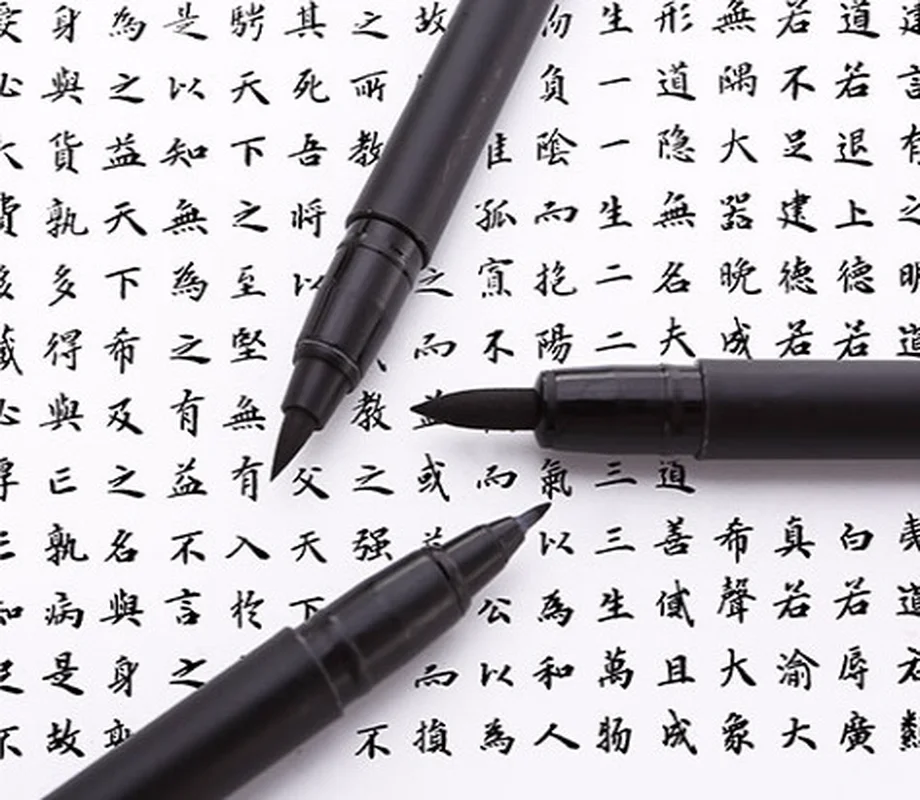 建言有之明道夷道
道若退上德若白若辱廣
若不足建德若真若渝大
無隅大器晚成希聲大象
形道隐無名夫道善貸且成
生一一生二二三三生萬物
負陰而抱陽氣以為和人
孤寡不而公以為
故之而益或而損
之所教教之强不
其死吾將以父天下
騁天下之至堅無有入於
是以知無為之有益不言之
為之益天下希及之名與身孰
身與貨孰多得與亡孰病是故